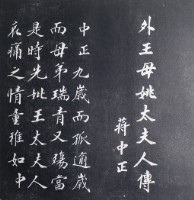 外王母姚太夫人傳
蔣中正
中正九歲而孤適歲
而母弟瑞青又殤當
是時先妣王太夫人
哀痛之情童稚如中